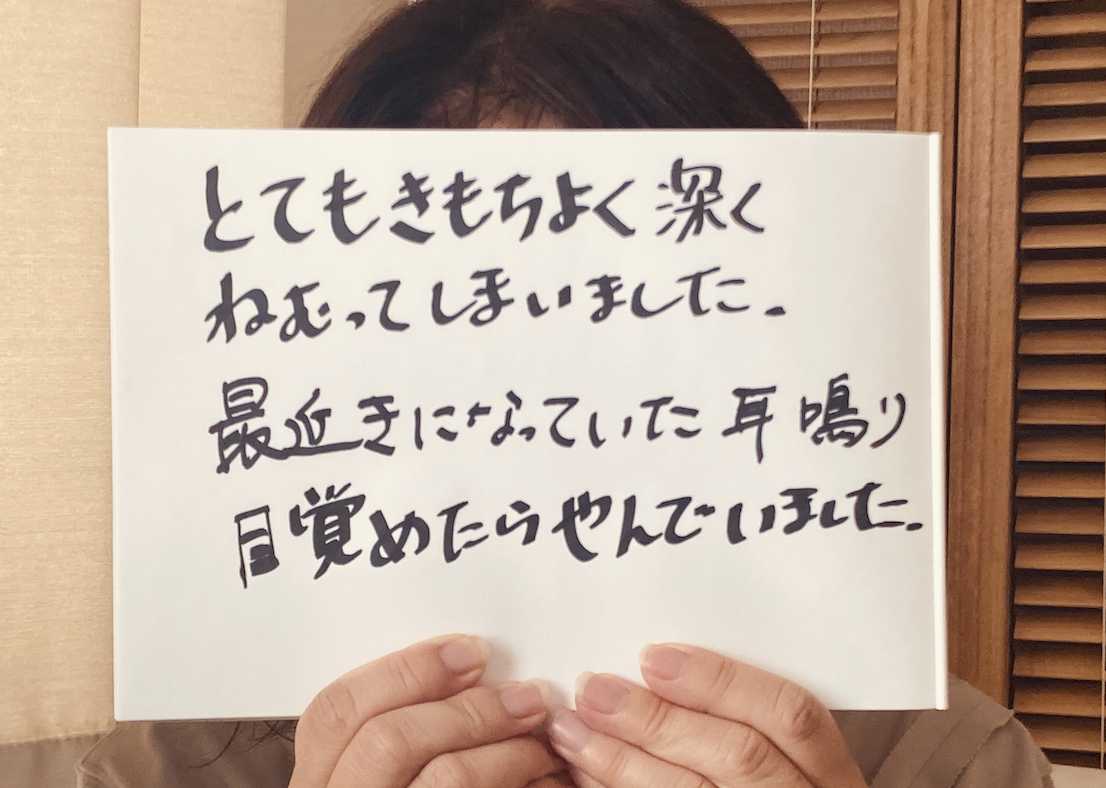 とてもきもちよく深く
ねむってしまいました.
最近きになっていた耳鳴り
目覚めたらやんでいました.